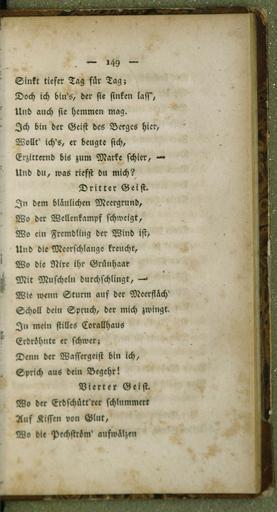 — 149 —
Sinkt tiefer Tag für Tag;
Doch ich bin's, der sie sinken lass',
Und auch sie hemmen mag.
Ich bin der Geist des Berges hier,
Wollt' ich's, er beugte sich,
Erzitternd bis zum Marke schier, —
Und du, was riefst du mich?
Dritter Geist.
In dem bläulichen Meergrund,
Wo der Wellenkampf schweigt,
Wo ein Fremdling der Wind ist,
Und die Meerschlange kreucht,
Wo die Nixe ihr Grünhaar
Mit Muscheln durchschlingt, —
Wie wenn Sturm auf der Meerfläch'
Scholl dein Spruch, der mich zwingt.
In mein stilles Corallhaus
Erdröhnte er schwer;
Denn der Wassergeist bin ich,
Sprich aus dein Begehr!
Vierter Geist.
Wo der Erdschütt'rer schlummert
Auf Kissen von Glut,
Wo die Pechström' aufwälzen